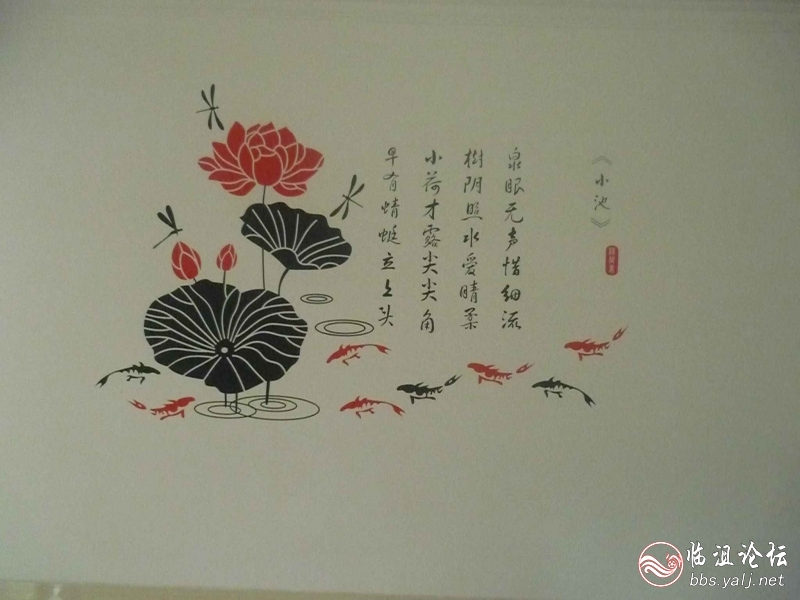 《小池》
泉眼无声惜细流
樹阴照水爱晴柔
小荷才露尖尖角
早有蜻蜓立上头
临沮论坛
bbs.yalj.net